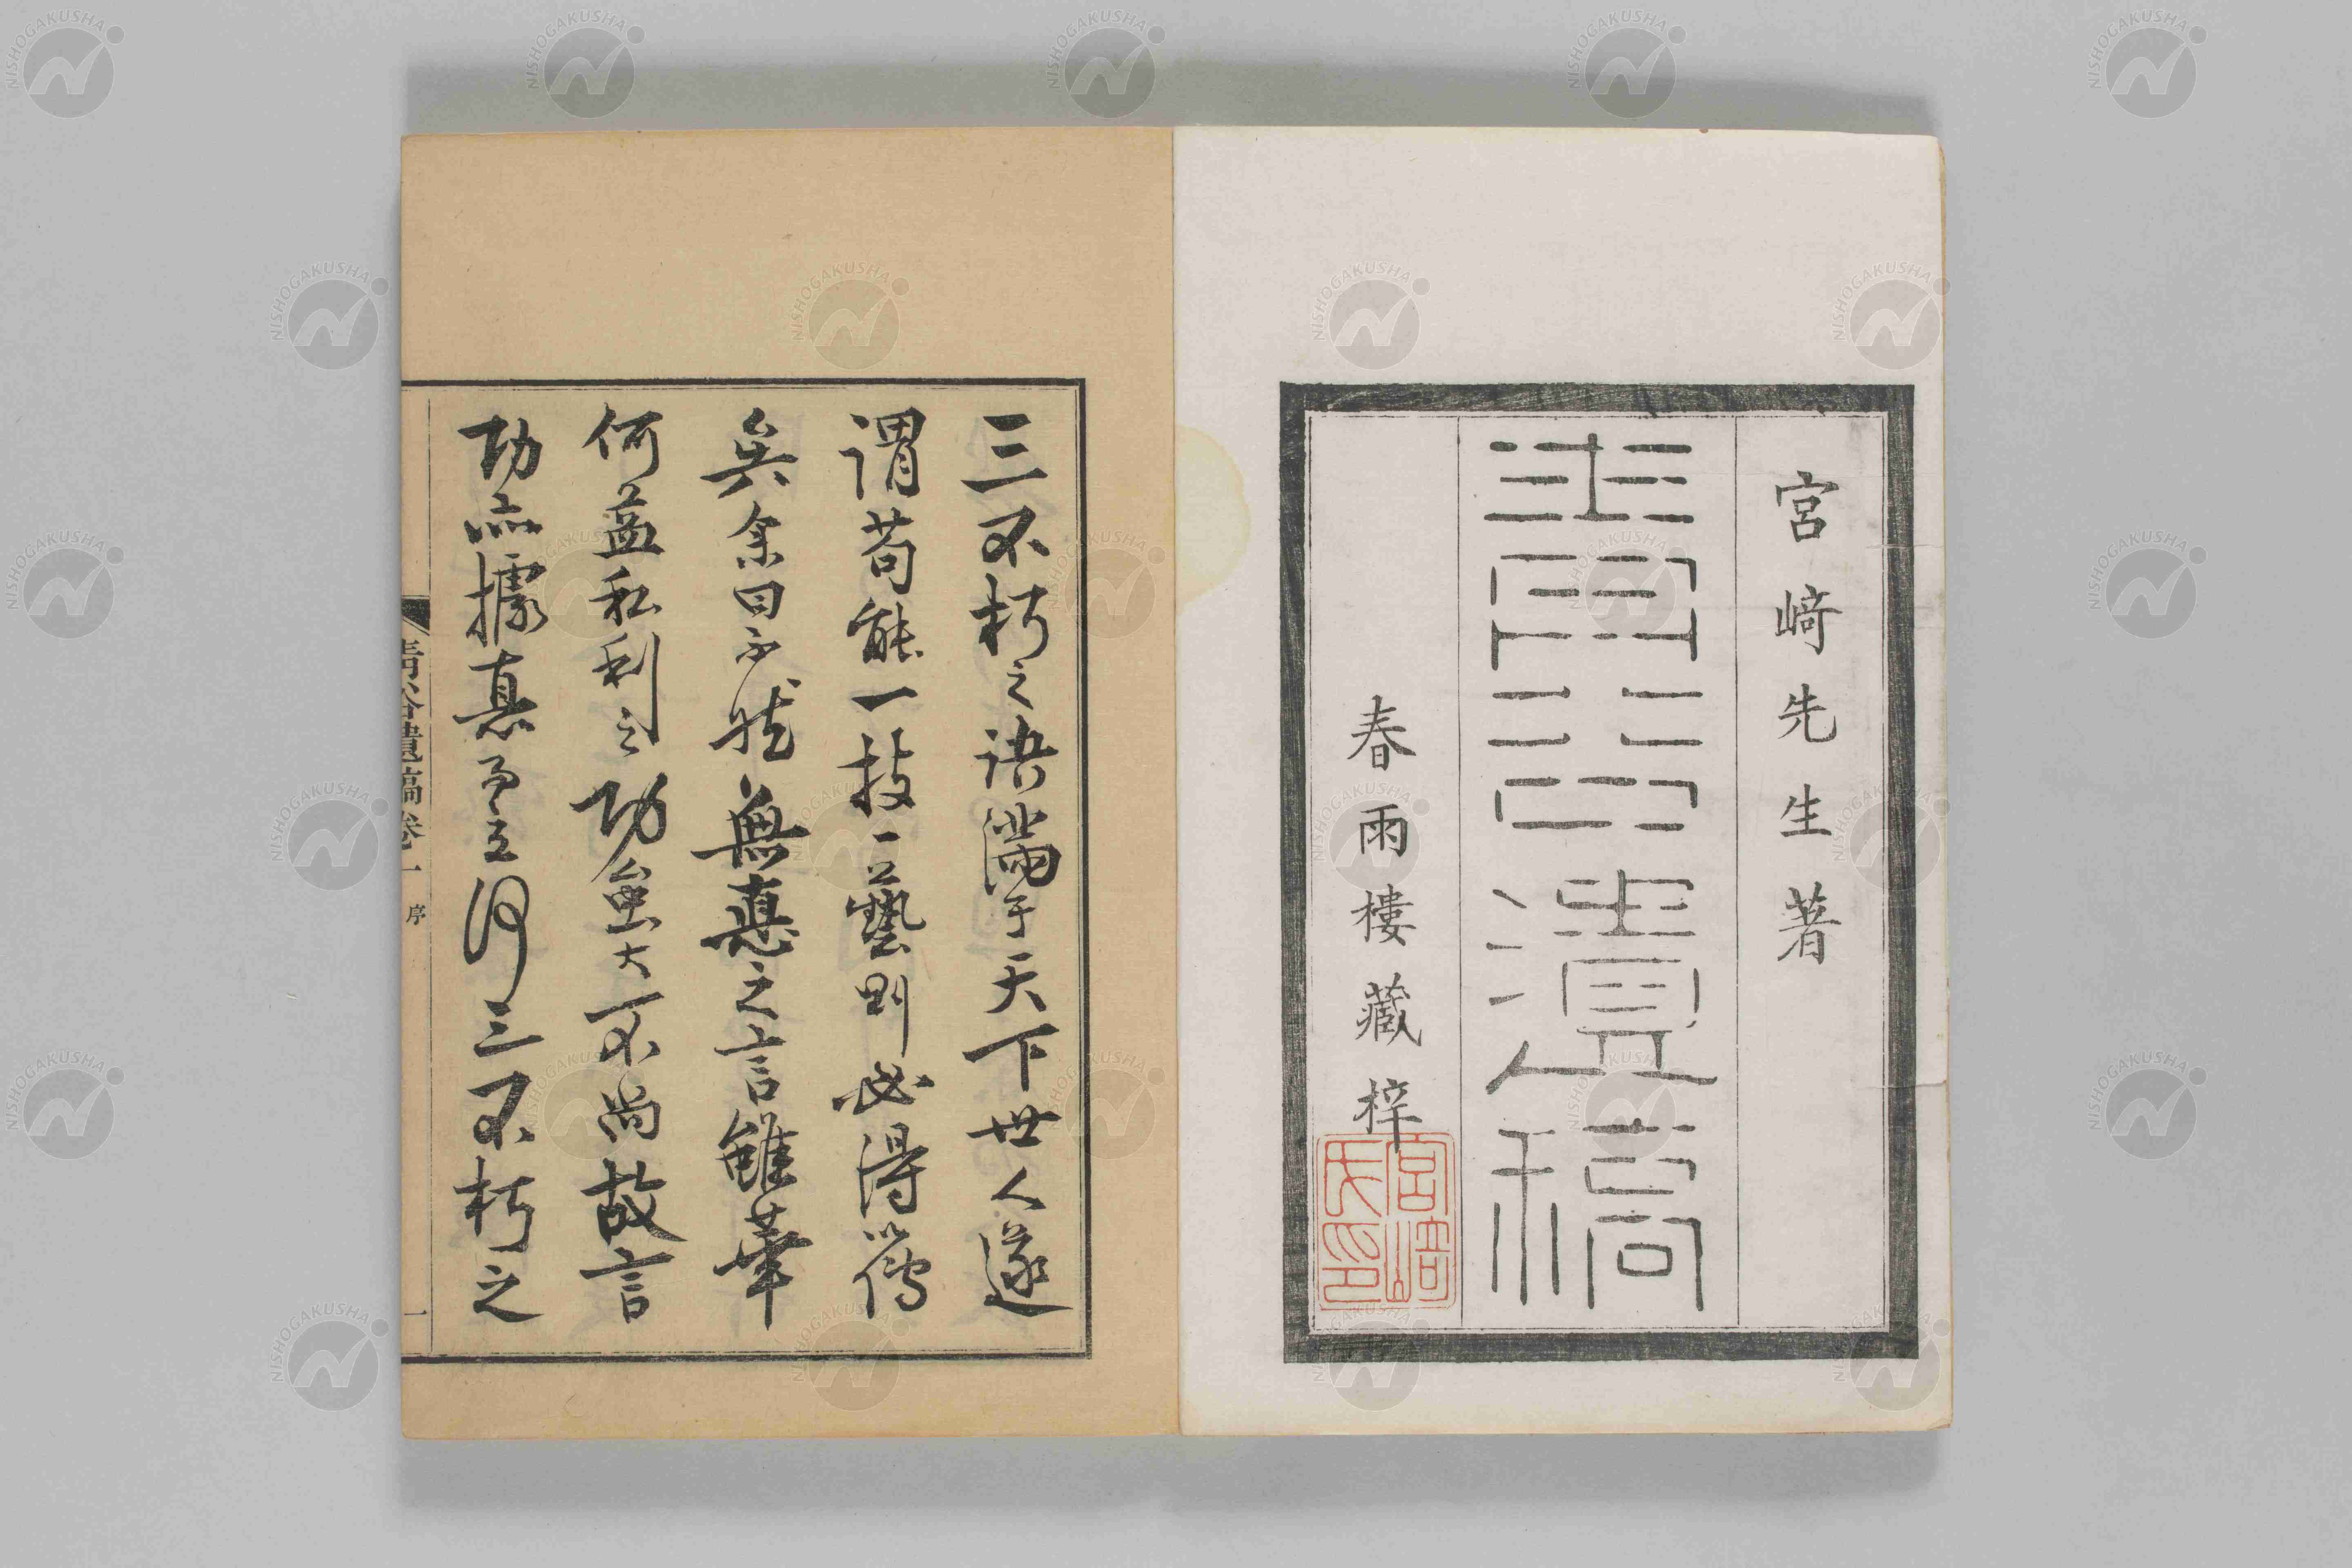 宮﨑先生著
青谷遺稿
春雨樓藏梓
宮﨑氏印
三不朽之語滿于天下世人遂
謂苟能一技一藝則必得以傳
矣余曰不然無悳之言雖華
何益私利之功雖大不尚故言
功亦據悳而立何三不朽之
青谷遺稿卷一 序 一
NISHOGAKUSHA